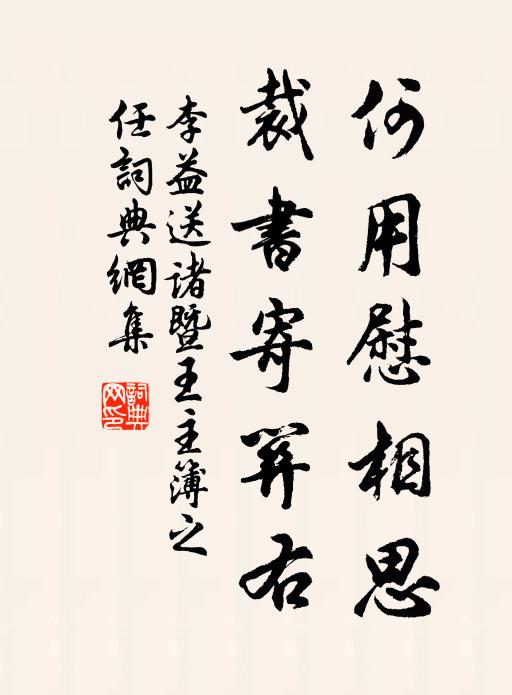 何用慰相思
裁書寄關右
李益送諸暨王主簿之
任詞典網集
詞典
网印